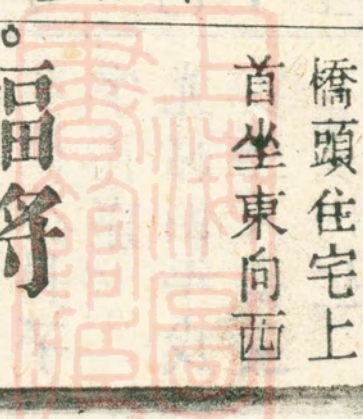 橋頭住宅上
首坐東向西
將